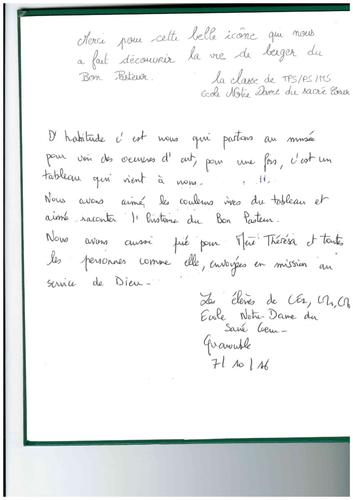 Merci pour cette belle icône qui nous
a fait découvrir la vie de berger du
Bon Pasteur.
la classe de TPS/PS/MS
Ecole Notre Dame du sacré Coeur
D'habitude c'est nous qui partons au musée
pour voir des oeuvres d'art, pour une fois, c'est un
tableau qui vient à nous.
Nous avons aimé les couleurs vives du tableau et
aimé raconter l'histoire du Bon Pasteur.
Nous avons aussi prié pour Mère Thérésa et toutes
les personnes comme elle, envoyées en mission au
service de Dieu.
Les élèves de CE2, CM1, CM2
Ecole Notre-Dame du
Sacré Coeur
Quarouble
7/10/16